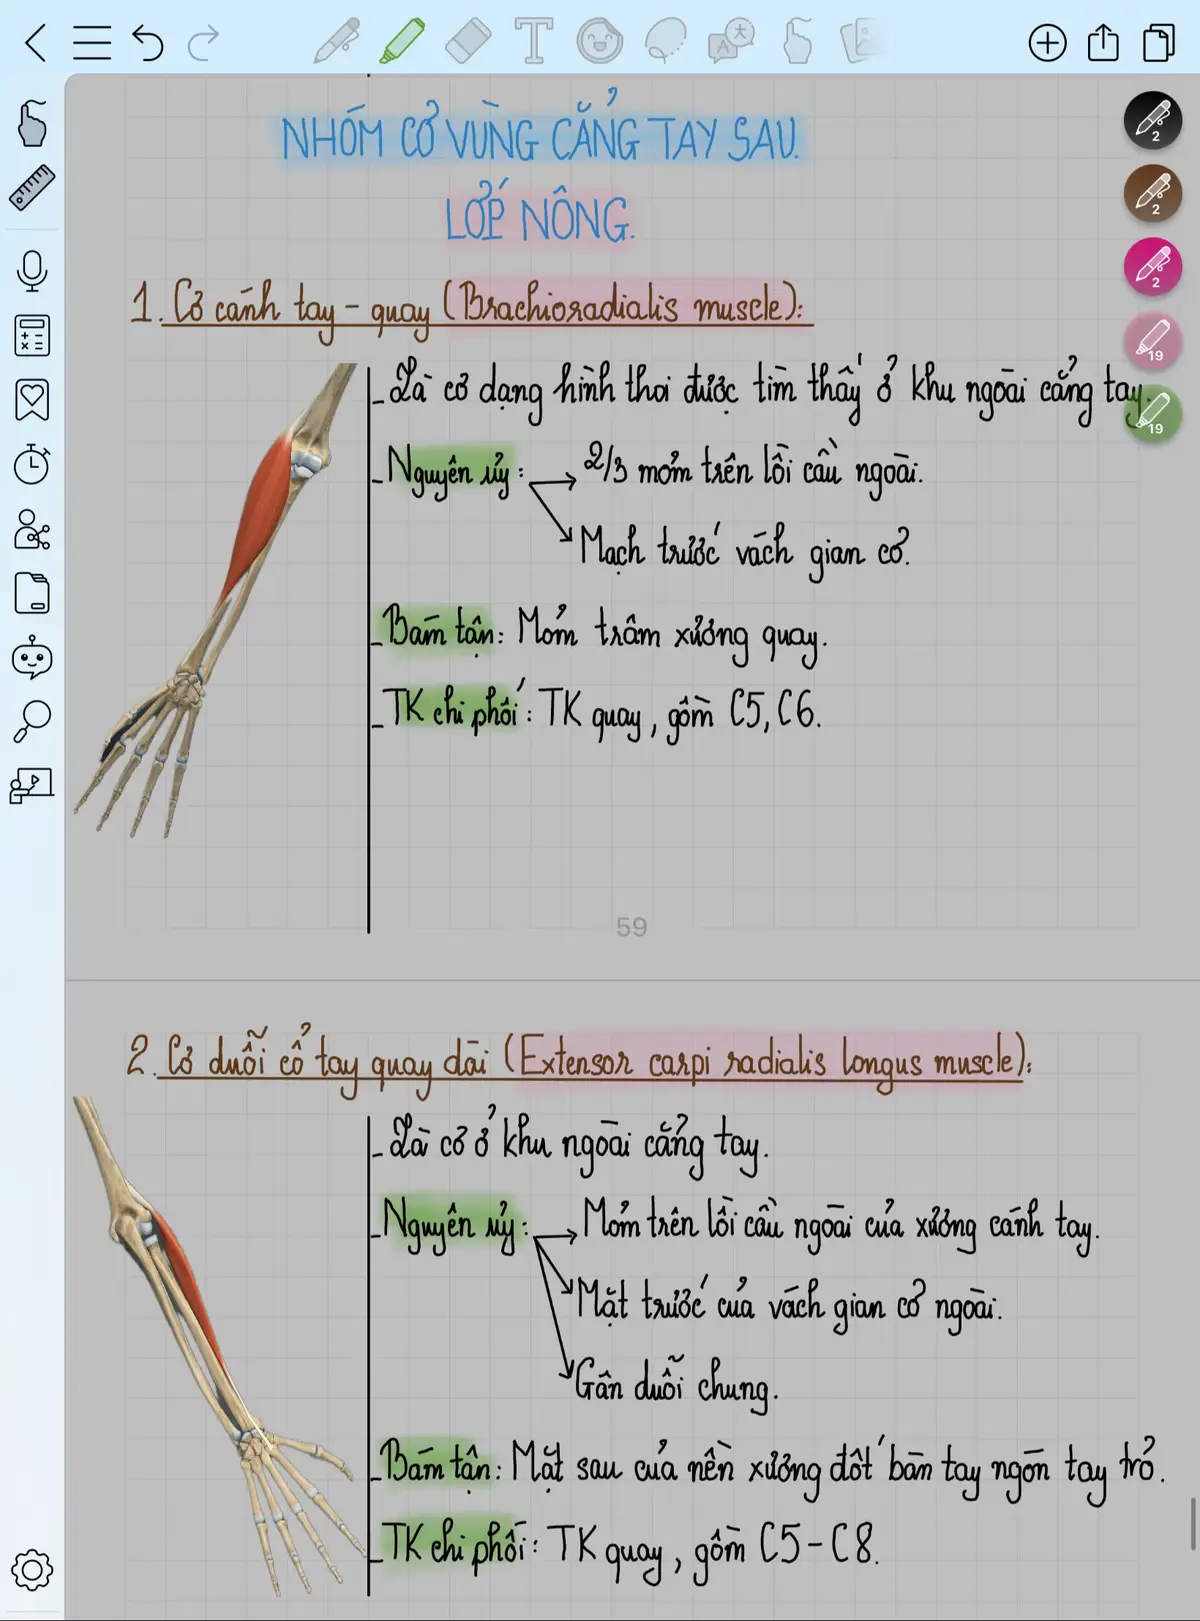 NHÓM CƠ VÙNG CẲNG TAY SAU.
LỚP NÔNG.
1. Cơ cánh tay - quay (Brachioradialis muscle):
- Là cơ dạng hình thoi được tìm thấy ở khu ngoài cẳng tay.
- Nguyên ủy: 2/3 mỏm trên lồi cầu ngoài.
Mạch trước vách gian cơ.
- Bám tận: Mỏm trâm xương quay.
- TK chi phối: TK quay, gồm C5, C6.
59
2. Cơ duỗi cổ tay quay dài (Extensor carpi radialis longus muscle):
- Là cơ ở khu ngoài cẳng tay.
- Nguyên ủy: Mỏm trên lồi cầu ngoài của xương cánh tay.
Mặt trước của vách gian cơ ngoài.
Gân duỗi chung.
- Bám tận: Mặt sau của nền xương đốt bàn tay ngón tay trỏ.
- TK chi phối: TK quay, gồm C5 - C8.
T
A
2
2
2
19
19